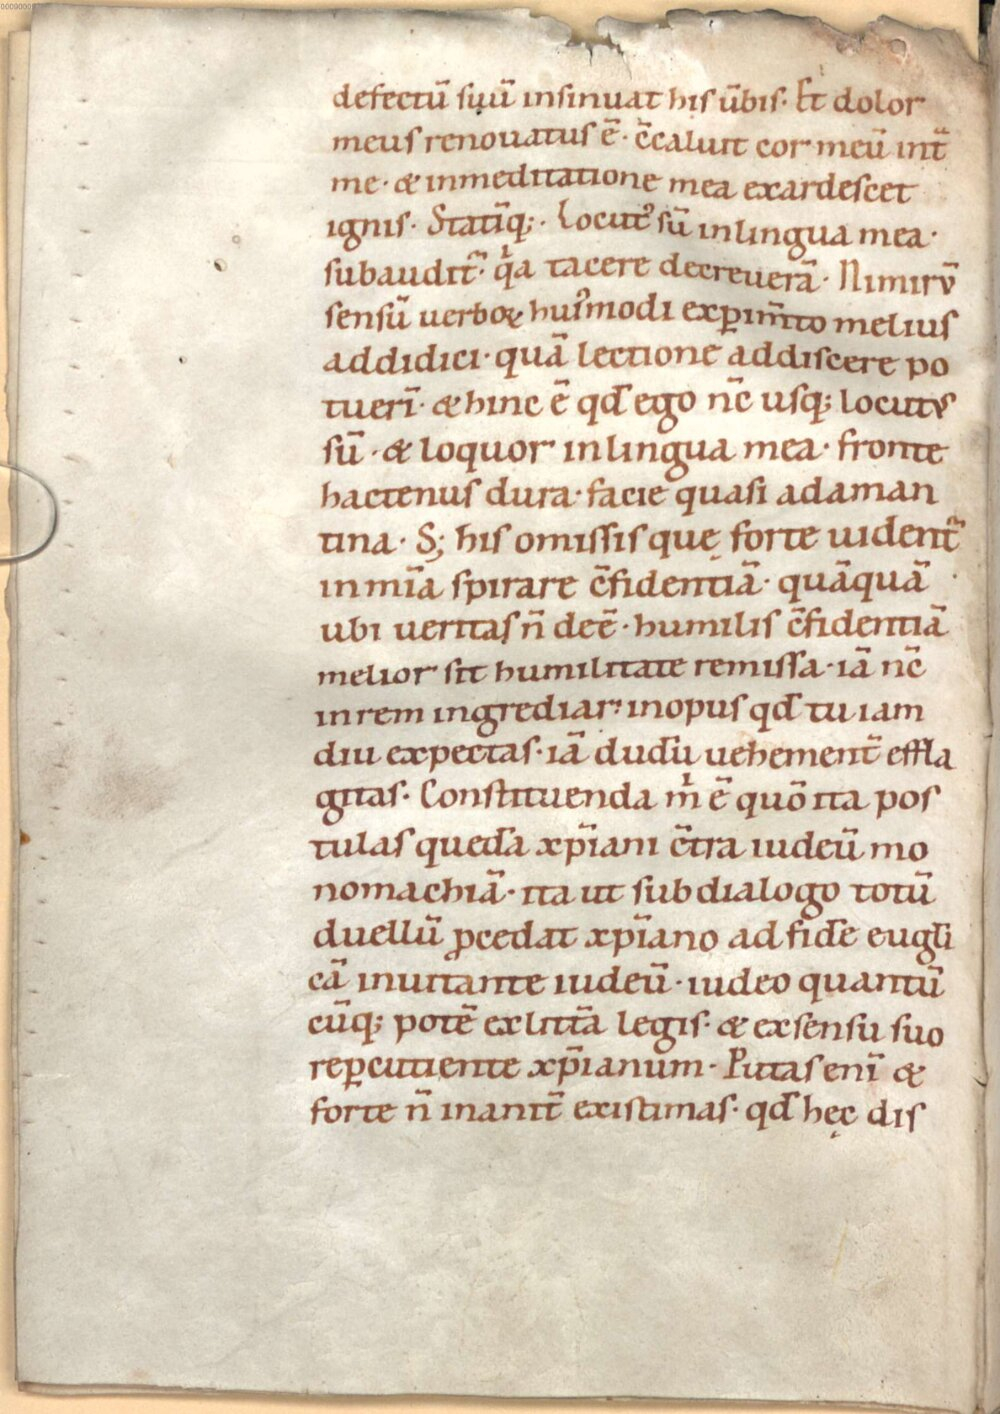 defectū suū insinuat his ūbis· Et dolor
meus renouatus ē· c̄caluit cor meū int̄
me· & inmeditatione mea exardescet
ignis· Statīq;· Locut᷒ sū inlingua mea·
subaudit̄· qͥa tacere decreuerā· Nimirū
sensū uerboꝝ hui᷒modi exꝑim̄to melius
addidici· quā lectione addiscere po
tueri᷒· & hinc ē qđ ego nc̄ usq; locutus
sū· & loquor inlingua mea· fronte
hactenus dura· facie quasi adaman
tina· S; his omissis quę forte uident̄
in mīa spirare c̄fidentiā· quāquā
ubi ueritas n̄ deē· humilis c̄fidentiā
melior sit humilitate remissa· iā nc̄
in rem ingrediar· inopus qđ tu iam
diu expectas· iā dudū uehement̄ effla
gitas· Constituenda mͥ ē quō ita pos
tulas queda xp̄iani c̄tra iudeū mo
nomachiā· ita ut sub dialogo totū
duellū ꝓcedat xp̄iano ad fidē eugłi
cā inuitante iudeū· iudeo quantū
cūq; potē exlitt̄a legis· & exsensu suo
reꝑcutiente xp̄ianum· Putas eni᷒ &
forte n̄ inanit̄ existimas· qđ hęc dis